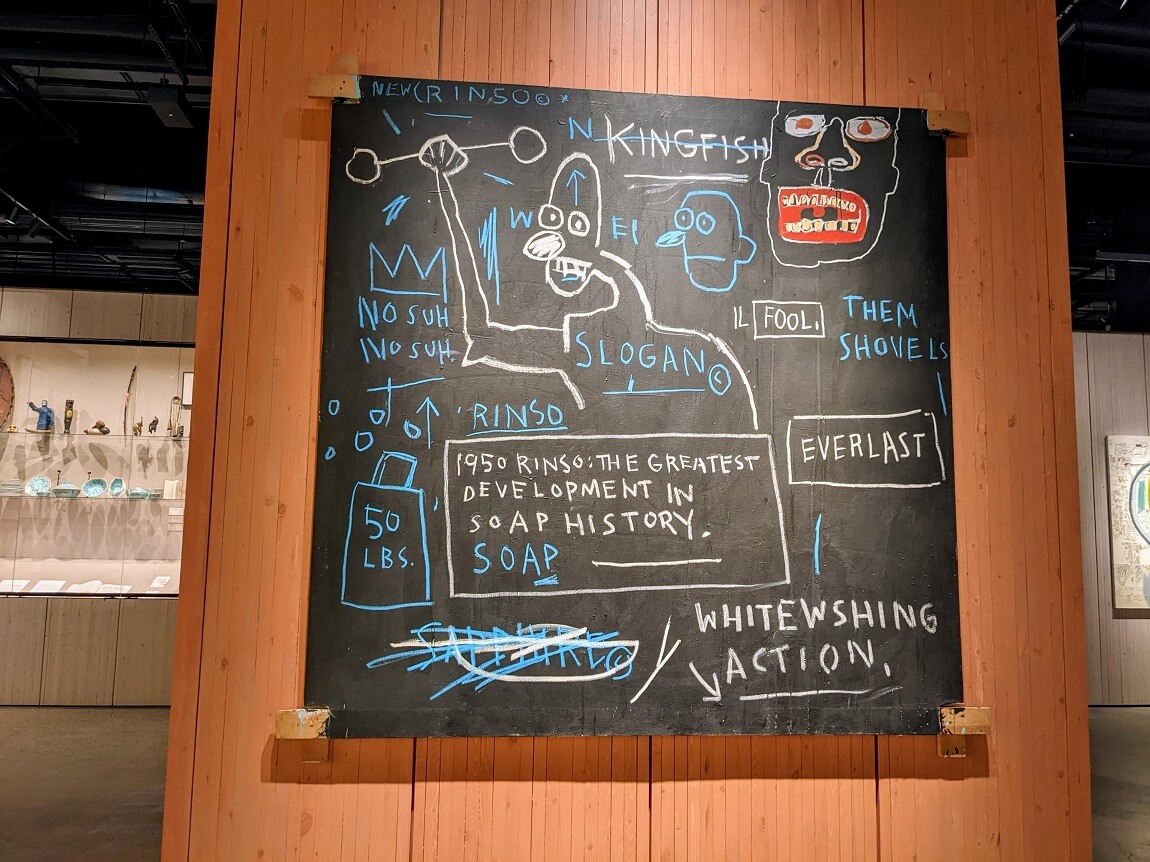 NEW(RINSO©*
N KINGFISH
W
EI
NO SUH
NO SUH.
IL FOOL.
THEM
SHOVELS
SLOGAN©
'RINSO
EVERLAST
1950 RINSO:THE GREATEST
DEVELOPMENT IN
SOAP HISTORY.
SOAP
50
LBS.
SAPPHIRE©
WHITEWSHING
ACTION.